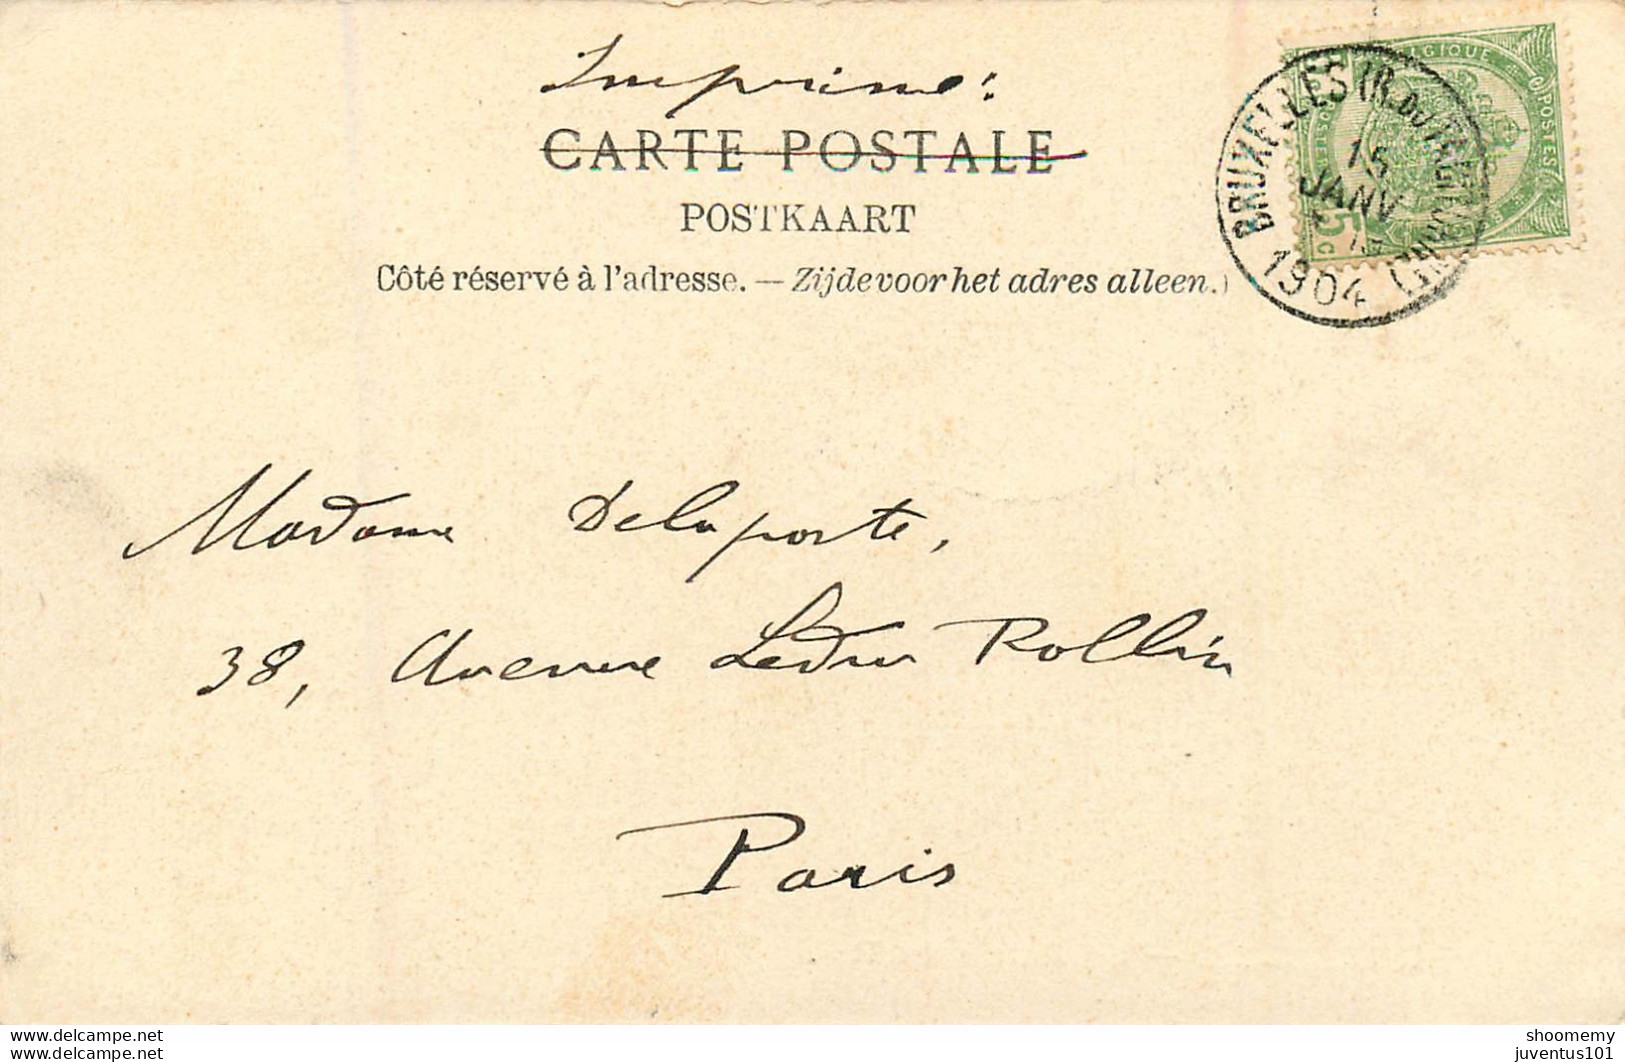 Imprimé:
CARTE POSTALE
POSTKAART
Côté réservé à l'adresse. — Zijde voor het adres alleen.)
BELGIQUE
POSTES
5 c
BRUXELLES (R. DU
15
JANV
1904
Madame Delaporte,
38, Avenue Ledru Rollin
Paris
www.delcampe.net
www.delcampe.net
shoomemy
juventus101